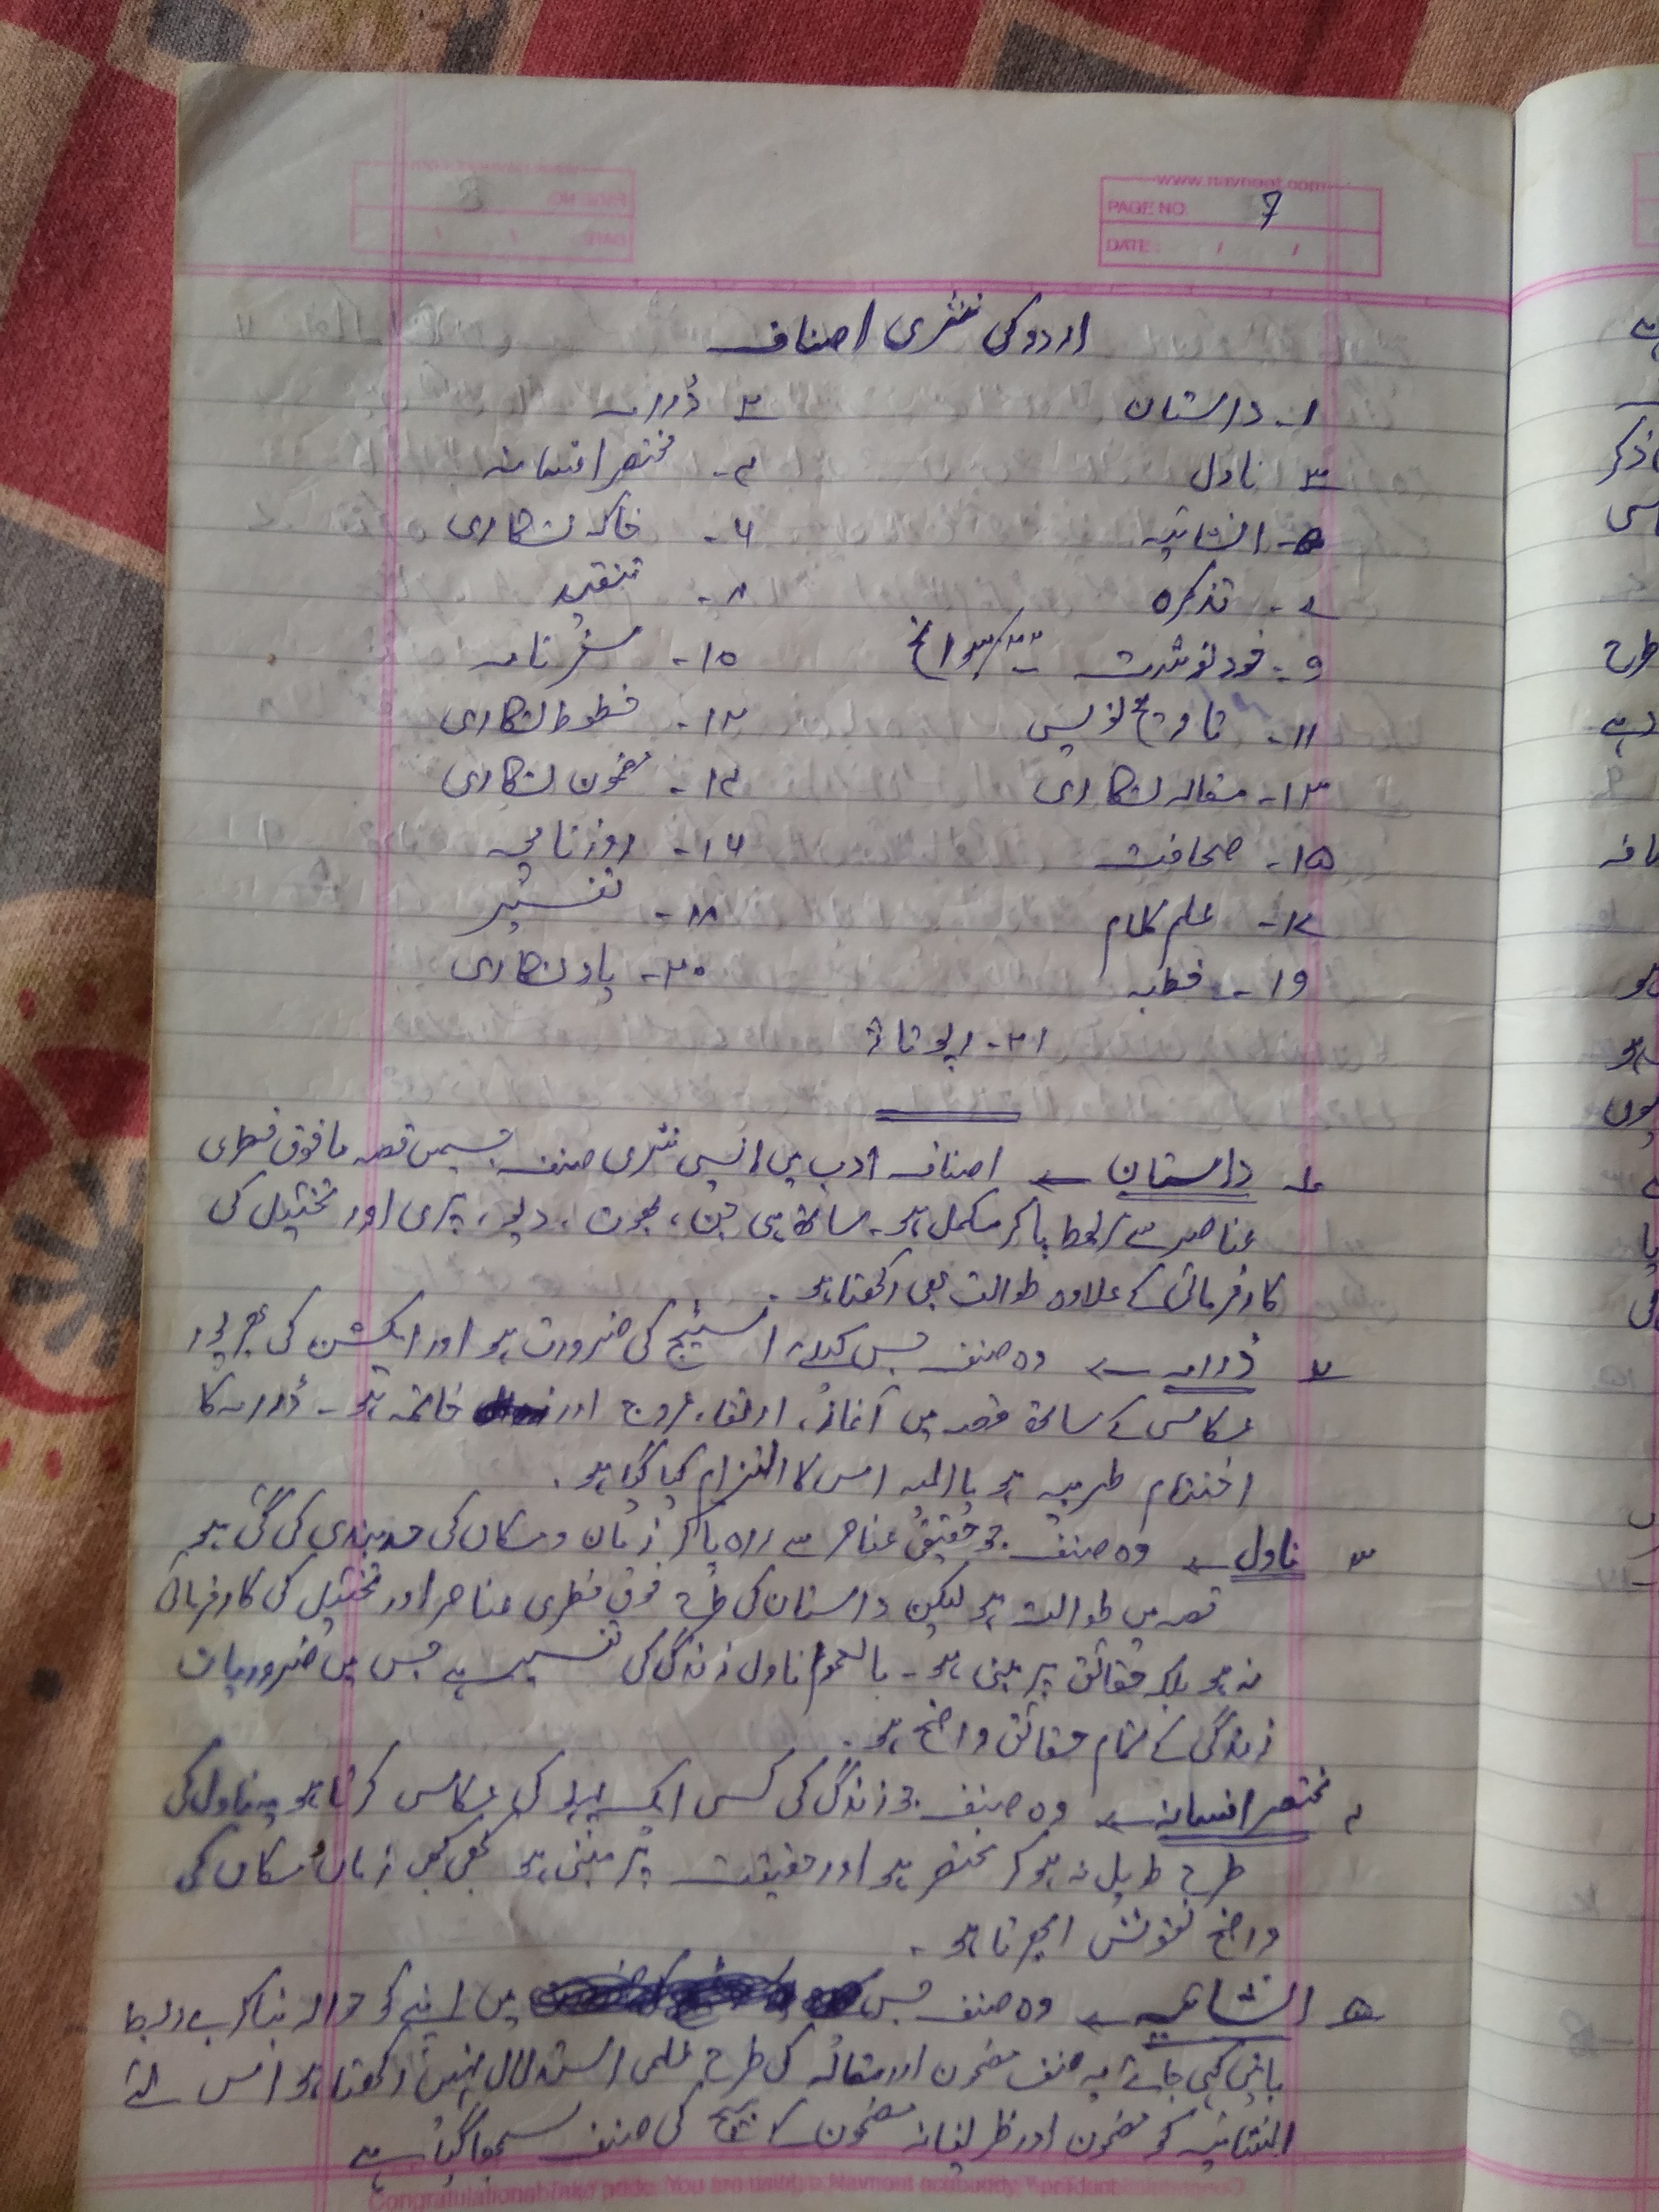 www.navneet.com
PAGE NO. 7
DATE : / /
اردو کی نثری اصناف
۱۔ داستان ۲ ڈرامہ
۳ ناول ۴۔ مختصر افسانہ
۵۔ انشائیہ ۶۔ خاکہ نگاری
۷۔ تذکرہ ۸۔ تنقید
۹۔ خود نوشت سوانح ۱۰۔ سفر نامہ
۱۱۔ تاریخ نویسی ۱۲۔ خطوط نگاری
۱۳۔ مقالہ نگاری ۱۴۔ مضمون نگاری
۱۵۔ صحافت ۱۶۔ روزنامچہ
۱۷۔ علم کلام ۱۸۔ تفسیر
۱۹۔ خطبہ ۲۰۔ یاد نگاری
۲۱۔ رپوتاژ
۱۔ داستان ← اصناف ادب میں ایسی نثری صنف جسمیں قصہ ما فوق فطری
عناصر سے ربط پا کر مکمل ہو۔ ساتھ ہی جن، بھوت، دیو، پری اور تخیل کی
کارفرمائی کے علاوہ طوالت بھی رکھتا ہو۔
۲ ڈرامہ ← وہ صنف جس کیلۓ اسٹیج کی ضرورت ہو اور ایکشن کی بھرپور
عکاسی کے ساتھ قصہ میں آغاز، ارتقا، عروج اور خاتمہ ہو۔ ڈرامہ کا
اختتام طربیہ ہو یا المیہ اس کا التزام کیا گیا ہو۔
۳ ناول ← وہ صنف جو حقیقی عناصر سے راہ پا کر زمان و مکاں کی حد بندی کی گئی ہو
قصہ میں طوالت ہو لیکن داستان کی طرح فوق فطری عناصر اور تخیل کی کارفرمائی
نہ ہو بلکہ حقائق پر مبنی ہو۔ بالعموم ناول زندگی کی تفسیر ہے جس میں ضروریات
زندگی کے تمام حقائق واضح ہو۔
۴ مختصر افسانہ ← وہ صنف جو زندگی کی کسی ایک پہلو کی عکاسی کرتا ہو یہ ناول کی
طرح طویل نہ ہو کر مختصر ہو اور حقیقت پر مبنی ہو کبھی کبھی زمان و مکاں کی
واضح نقوش ابھرتا ہو۔
۵ انشائیہ ← وہ صنف جس میں اپنے کو حوالہ بنا کر بے ربط
باتیں کہی جائے یہ صنف مضمون اور مقالہ کی طرح علمی استدلال نہیں رکھتا ہو اس لئے
انشائیہ کو مضمون اور ظریفانہ مضمون کے بیچ کی صنف سمجھا گیا ہے